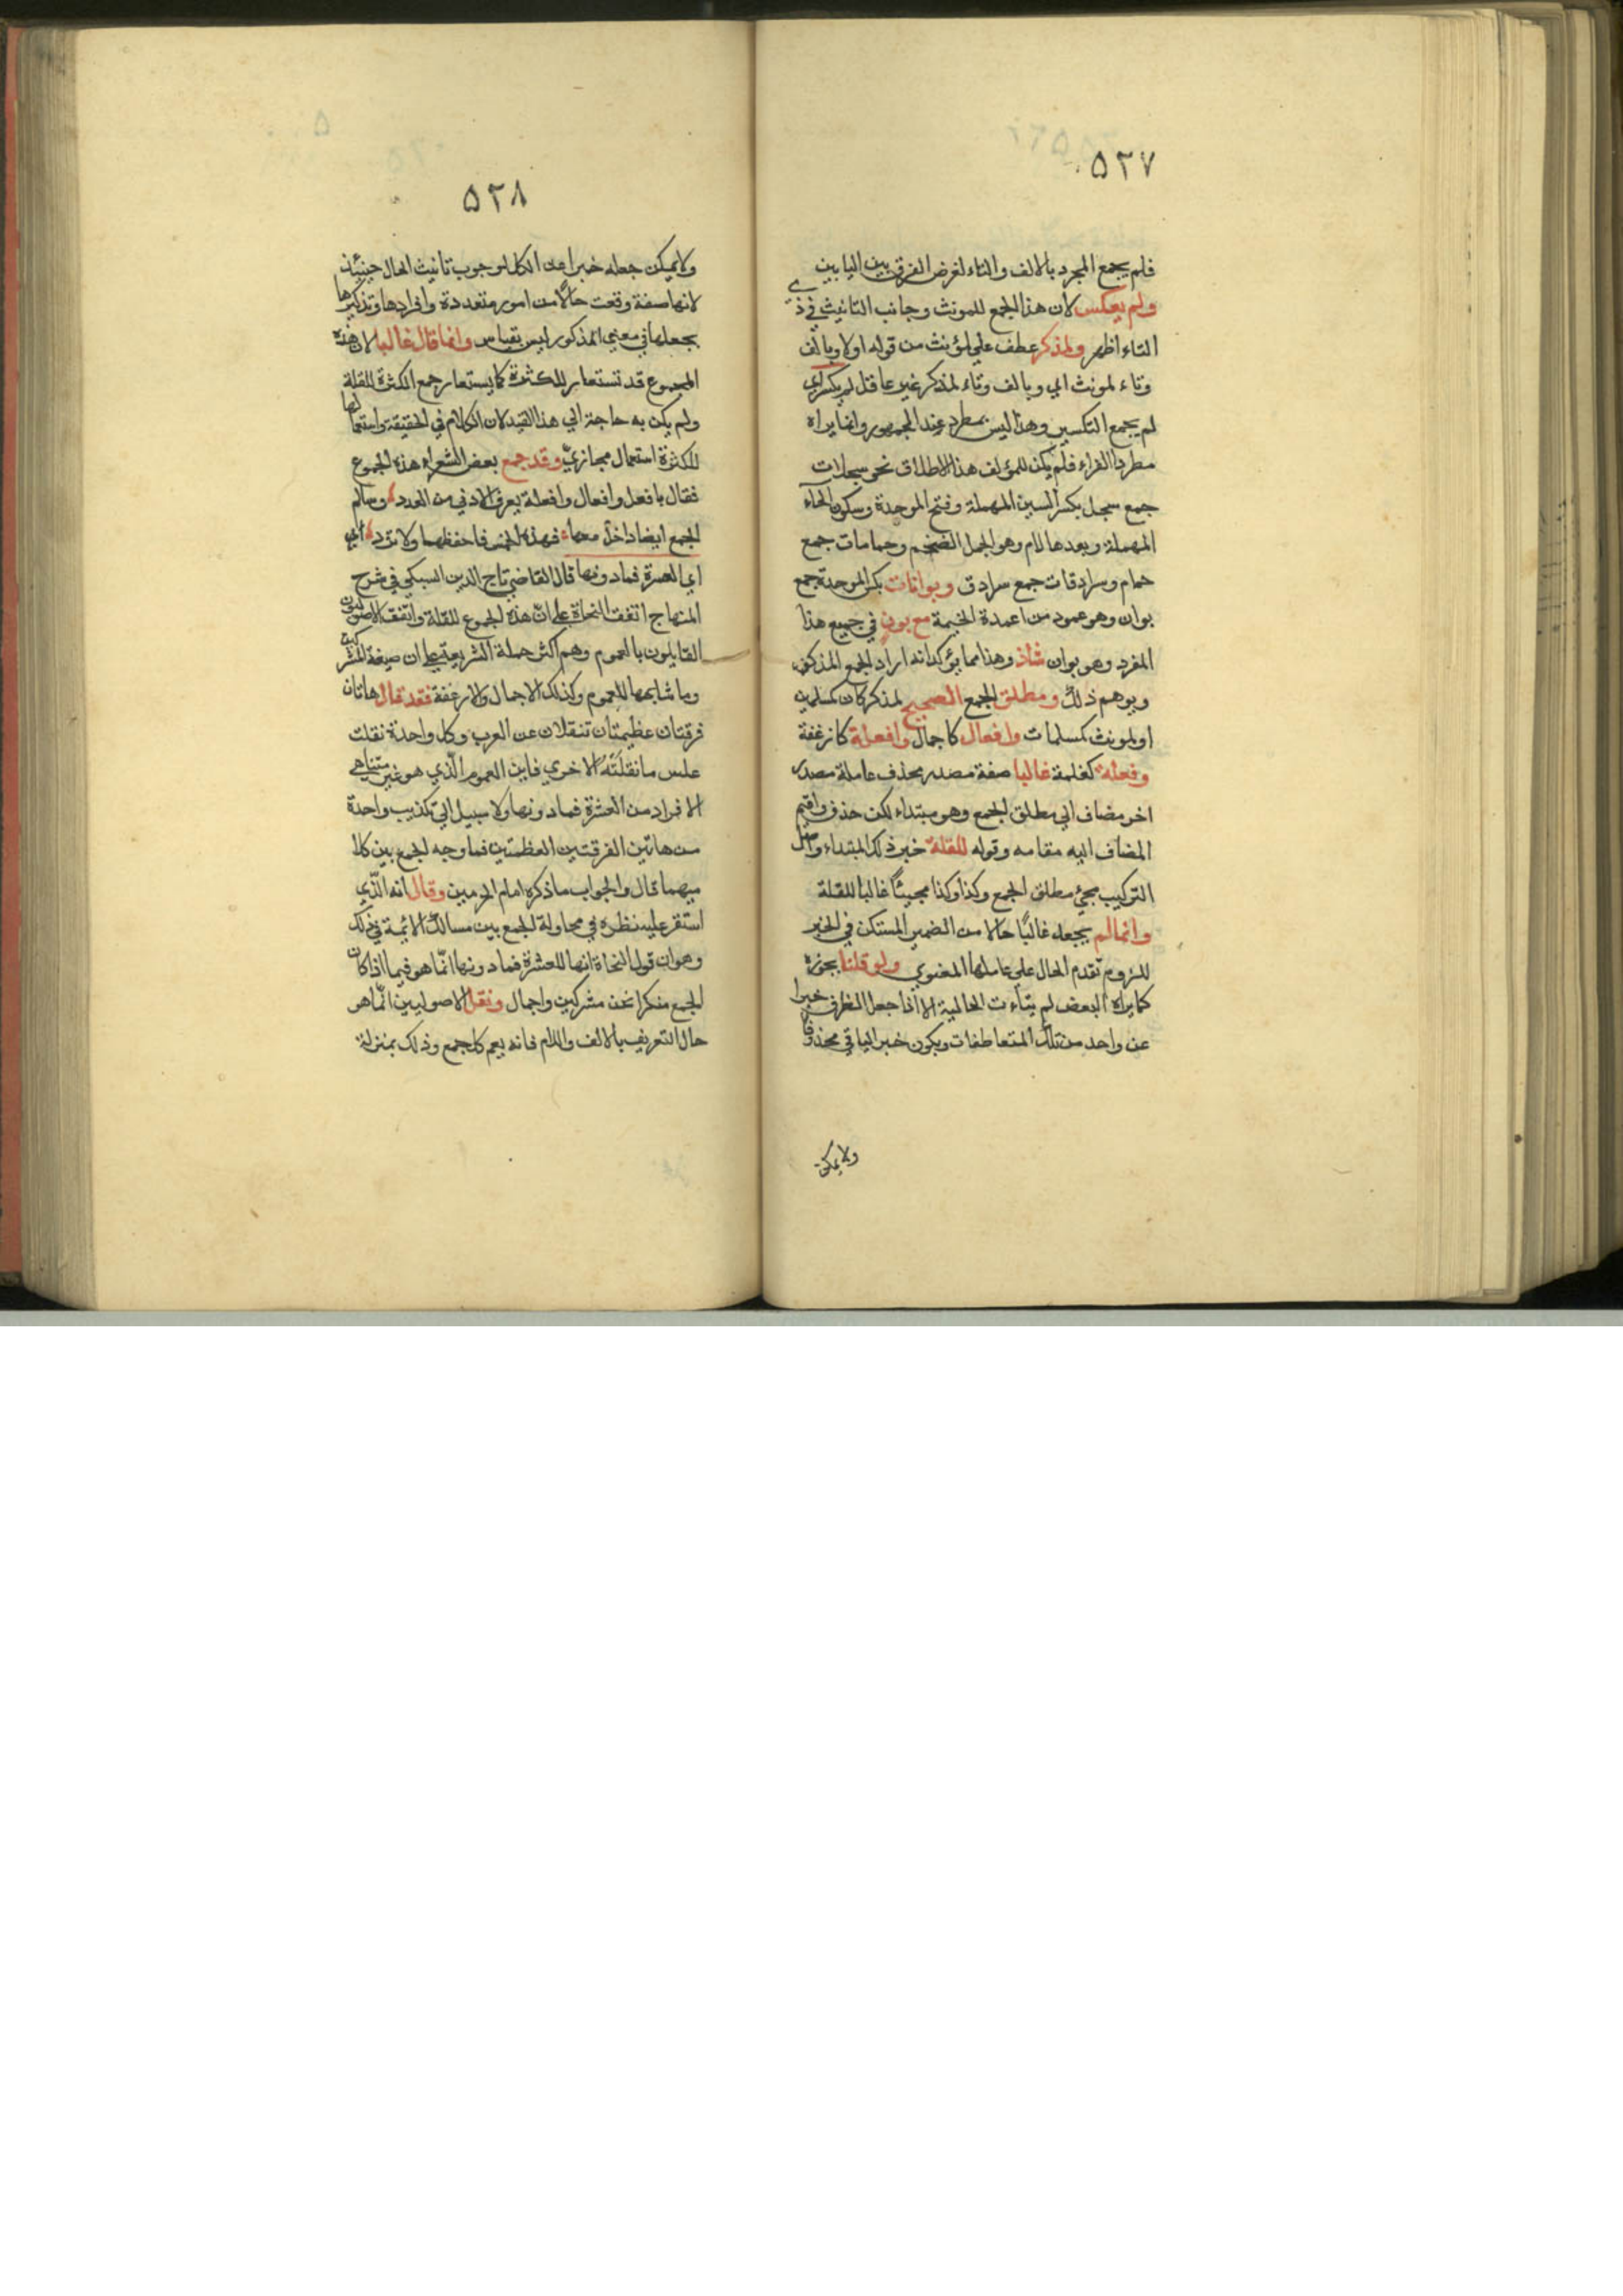 ٥٢٧
فلم يجمع المجرد بالالف والتاء لغرض الفرق بين اليابين
ولم يعكس لان هذا الجمع للمونث وجانب التانيث في ذي
التاء اظهر ولمذكر عطف علي لمؤنث من قوله اولا وبالف
وتاء لمونث اي وبالف وتاء لمذكر غير عاقل لم يكسر اي
لم يجمع التكسير وهذا ليس بمطرد عند الجمهور وانما يراه
مطردا الفراء فلم يكن للمؤلف هذا الاطلاق نحو سبحلات
جمع سبحل بكسر السين المهملة وفتح الموحدة وسكون الحاء
المهملة وبعدها لام وهو الجمل الضخم وحمامات جمع
حمام وسرادقات جمع سرادق وبوانات بكسر الموحدة جمع
بوان وهو عمود من اعمدة الخيمة مع بون في جميع هذا
المفرد وهو بوان شاذ وهذا مما يؤكد انه اراد الجمع المذكور
ويوهم ذلك ومطلق الجمع الصحيح لمذكر كان كمسلمين
او لمونث كمسلمات وافعال كاجمال وافعلة كارغفة
وفعلة كغلمة غالبا صفة مصدر بحذف عاملة مصدر
اخر مضاف الي مطلق الجمع وهو مبتداء لكن حذف واقيم
المضاف اليه مقامه وقوله للقلة خبر ذلك المبتداء واصل
التركيب مجئ مطلق الجمع وكذا وكذا مجيئًا غالبا للقلة
وانما لم يجعل غالبًا حالا من الضمير المستكن في الخبر
للزوم تقدم الحال علي عاملها المعنوي ولو قلنا بجوزه
كما يراه البعض لم يتاءت الحالية الا اذا جعل الظرف خبرا
عن واحد من تلك المتعاطفات ويكون خبر الباقي محذوفا
ولا يمكن
٥٢٨
ولا يمكن جعله خبرا عن الكل لوجوب تانيث الحال حينئذ
لانها صفة وقعت حالًا من امور متعددة وافرادها وتذكيرها
بجعلها في معني المذكور ليس بقياس وانما قال غالبا لان هذه
المجموع قد تستعار للكثرة كما يستعار جمع الكثرة للقلة
ولم يكن به حاجة الي هذا القيد لان الكلام في الحقيقة واستعمالها
للكثرة استعمال مجازيّ وقد جمع بعض الشعراء هذه الجموع
فقال بافعل وافعال وافعلة يعرف الادني من العدد وسالم
الجمع ايضا داخل معها فهذه الخمس فاحفظها ولا تزد اي
اي العشرة فما دونها قال القاضي تاج الدين السبكي في شرح
المنهاج اتفقت النحاة علي انّ هذه الجموع للقلة واتفق الاصوليون
القايلون بالعموم وهم اكثر حملة الشريعة علي ان صيغة المشركين
وما شابهها للعموم وكذلك الاجمال والارغفة فقد تقال هاتان
فرقتان عظيمتان تنقلان عن العرب وكل واحدة نقلت
عكس ما نقلته الاخري فاين العموم الّذي هو غير متناهي
الافراد من العشرة فما دونها ولا سبيل الي تكذيب واحدة
من هاتين الفرقتين العظمتين فما وجه الجمع بين كلا
ميهما قال والجواب ما ذكره امام الحرمين وقال انه الّذي
استقر عليه نظره في محاولة الجمع بين مسالك الائمة في ذلك
وهو ان قول النحاة انها للعشرة فما دونها انّما هو فيما اذا كان
الجمع منكرا نحو مشركين واجمال ونقل الاصوليين انّما هو
حال التعريف بالالف واللام فانه يعم كل جمع وذلك بمنزلة